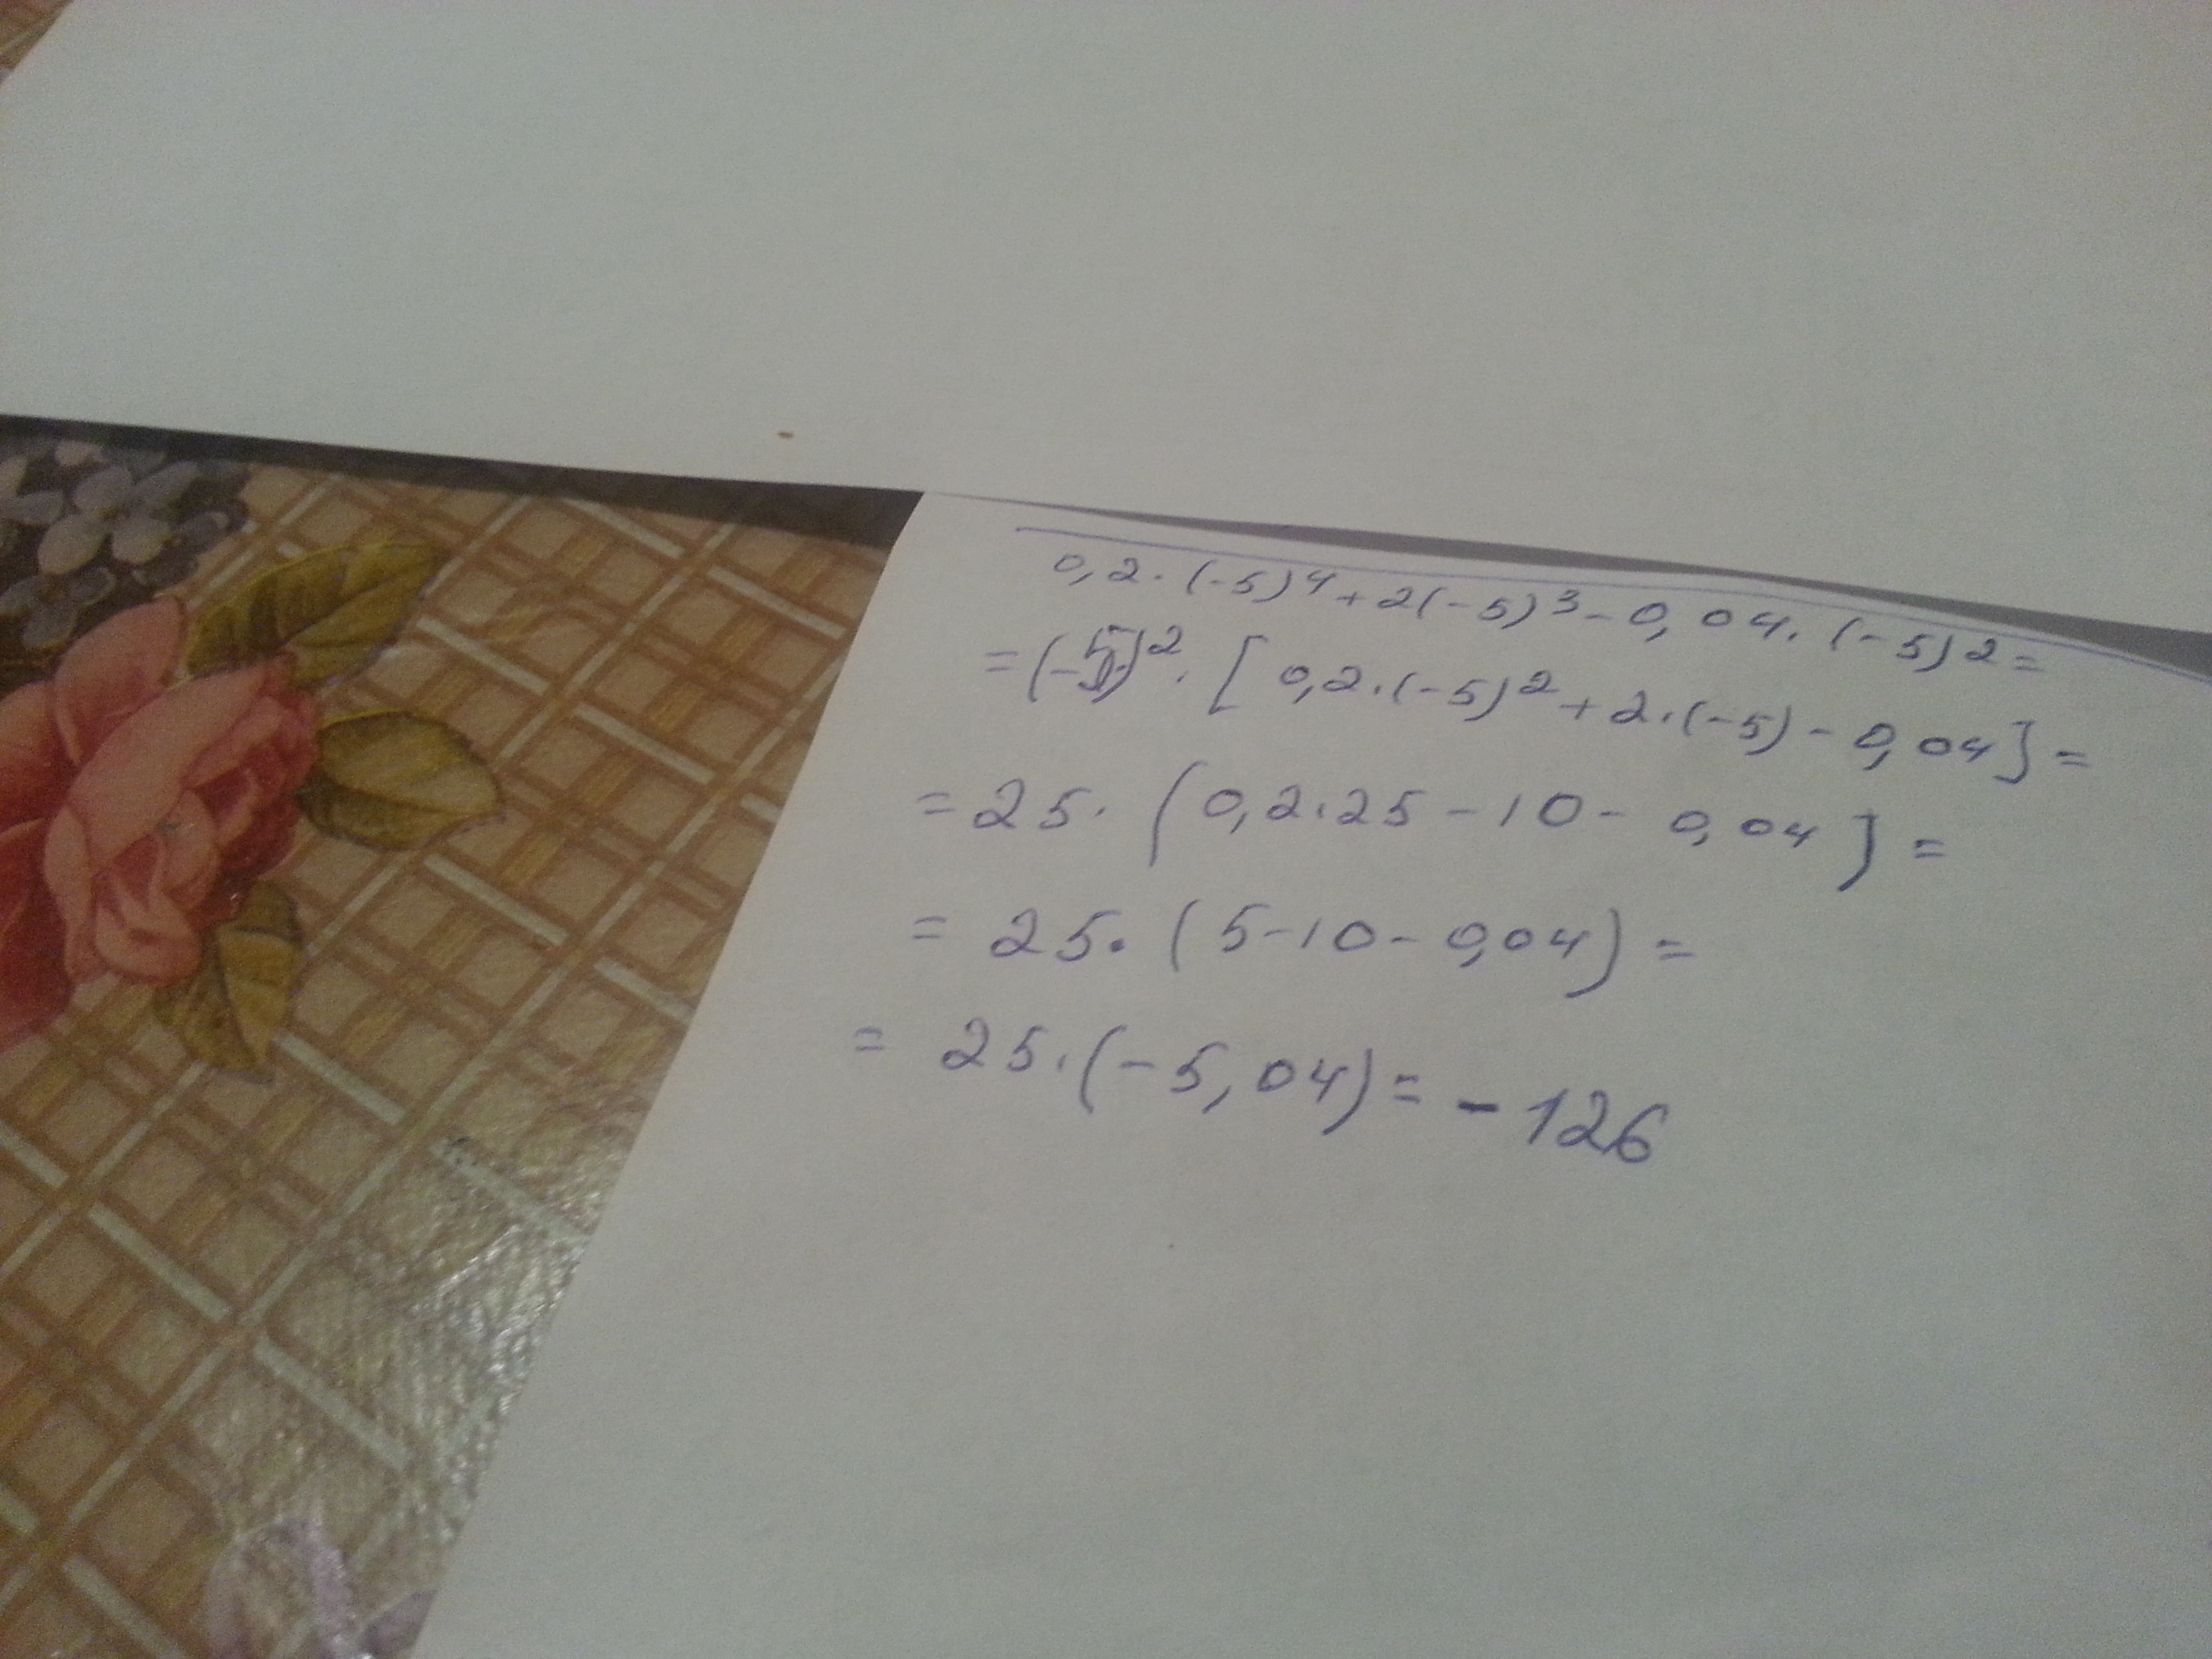 0,2·(-5)⁴+2(-5)³-0,04·(-5)²=
=(-5)²·[0,2·(-5)²+2·(-5)-0,04]=
=25·(0,2·25-10-0,04]=
=25·(5-10-0,04)=
=25·(-5,04)=-126